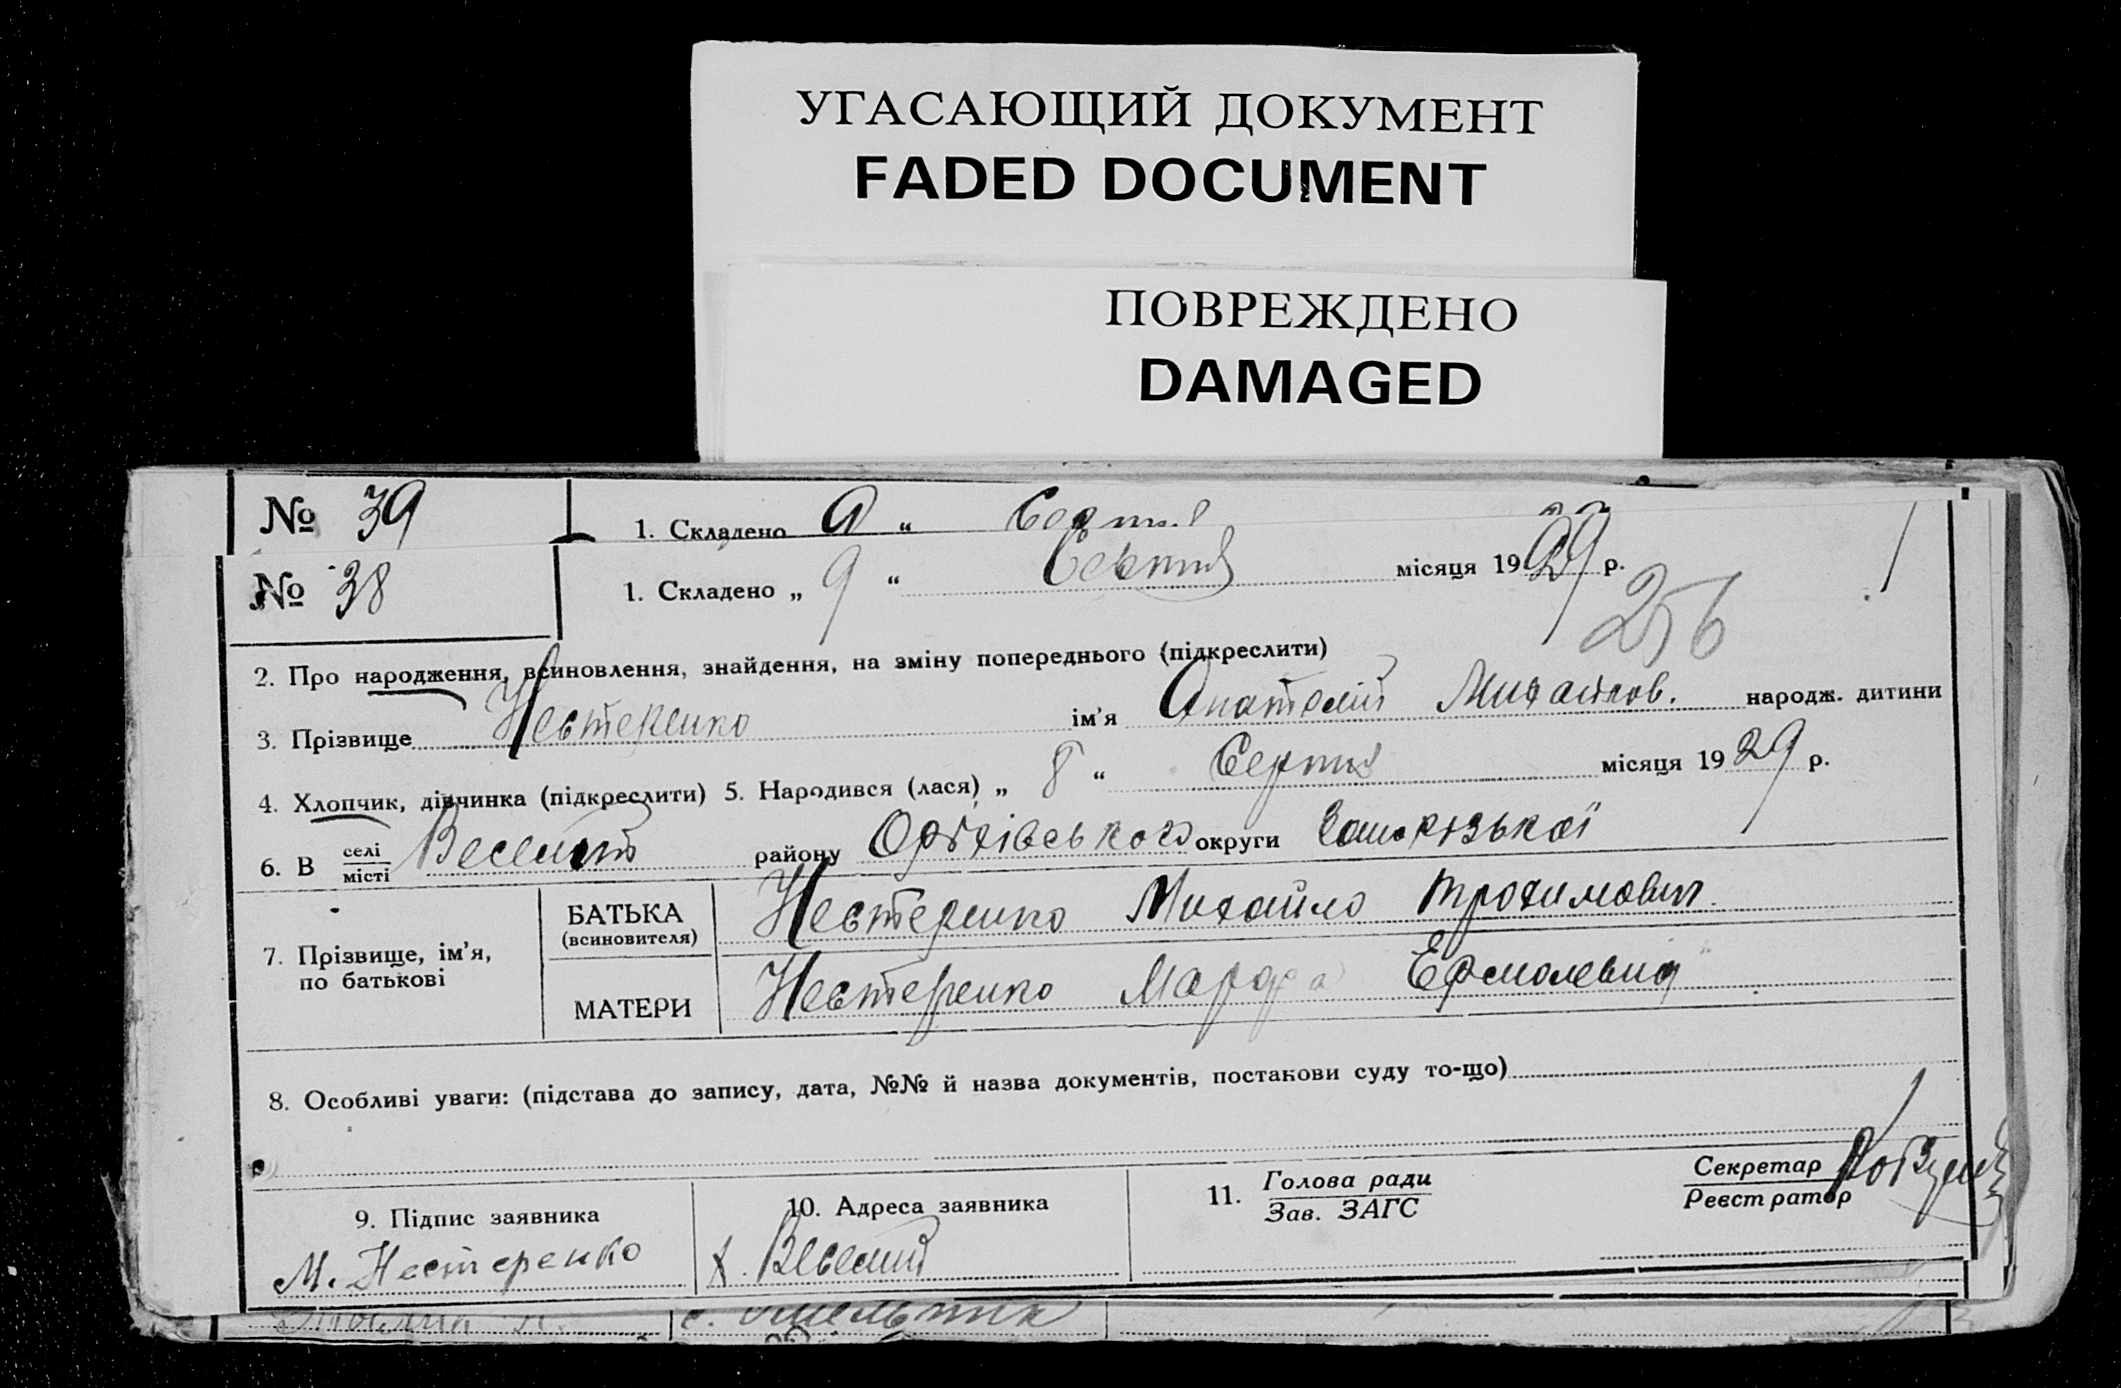 УГАСАЮЩИЙ ДОКУМЕНТ
FADED DOCUMENT
ПОВРЕЖДЕНО
DAMAGED
№ 39 1. Складено 9 "
№ 38 1. Складено „ 9 " місяця 1929 р.
256
2. Про народження, всиновлення, знайдення, на зміну попереднього (підкреслити)
3. Прізвище Нестеренко ім'я Анатолій Михайлов. народж. дитини
4. Хлопчик, дівчинка (підкреслити) 5. Народився (лася) „ 8 " Серпня місяця 1929 р.
6. В селі Веселий району Оріхівського округи Запорізької
місті
7. Прізвище, ім'я, по батькові
БАТЬКА Нестеренко Михайло Трохимович.
(всиновителя)
МАТЕРИ Нестеренко
8. Особливі уваги: (підстава до запису, дата, №№ й назва документів, постанови суду то-що)
9. Підпис заявника
М. Нестеренко
10. Адреса заявника
х. Веселий
11. Голова ради
Зав. ЗАГС
Секретар
Реєстратор
с. Омельник